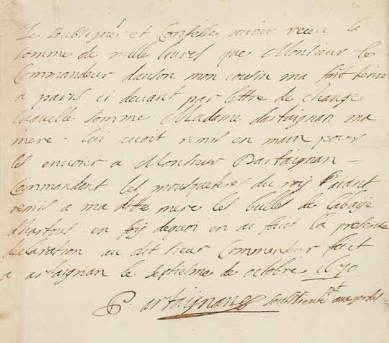 Je soubsigné et Confesse avoir receu la
somme de mille livres que Monsieur le
Commandeur mon cousin ma fait tenir
a paris ci devant par lettre de change
laquelle somme Madame dartaignan ma
mere lui avoit remis en main pour
les envoier a Monsieur Dartaignan
Commandant les mousquetaires du roy
remis a ma dite mere les bulles de labaye
en foy dequoi en ai fait la presente
declaration au dit sieur Commandeur fait
a artaignan le septiesme de octobre 1670
P. artaignan